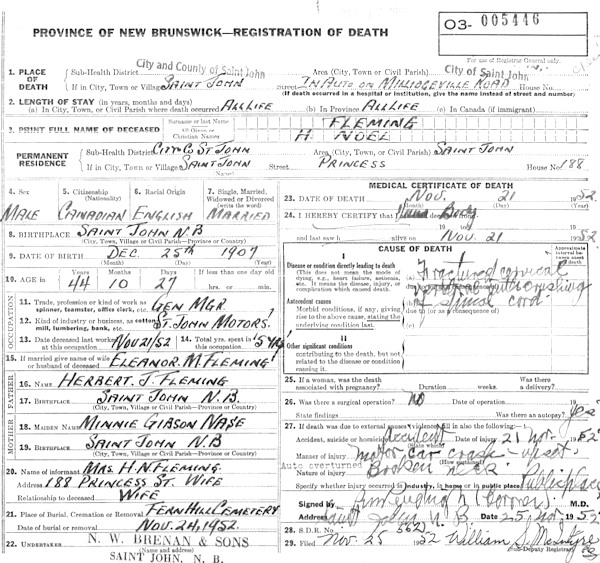 O3- 005446
PROVINCE OF NEW BRUNSWICK—REGISTRATION OF DEATH
For use of Registrar General only.
City and County of Saint John
City of Saint John
1. PLACE OF DEATH Sub-Health District Area (City, Town or Civil Parish)
If in City, Town or Village SAINT JOHN street IN AUTO ON MILLIDGEVILLE ROAD House No
(If death occurred in a hospital or institution, give the name instead of street and number)
2. LENGTH OF STAY (in years, months and days)
(a) In City, Town, or Civil Parish where death occurred ALL LIFE (b) In Province ALL LIFE (c) In Canada (if immigrant)
3. PRINT FULL NAME OF DECEASED Surname or last Name FLEMING
All Given or Christian Names H. NOEL
PERMANENT RESIDENCE Sub-Health District CITY & CO ST JOHN Area (City, Town or Civil Parish) SAINT JOHN
If in City, Town or Village SAINT JOHN Street PRINCESS House No. 188
4. Sex 5. Citizenship (Nationality) 6. Racial Origin 7. Single, Married, Widowed or Divorced (write the word)
MALE CANADIAN ENGLISH MARRIED
8. BIRTHPLACE SAINT JOHN N.B
(City, Town, Village or Civil Parish—Province or Country)
9. DATE OF BIRTH DEC. 25th 1907
(Month) (Day) (Year)
10. AGE in Years Months Days If less than one day old
44 10 27 hrs. or min.
OCCUPATION
11. Trade, profession or kind of work as spinner, teamster, office clerk, etc. GEN MGR
12. Kind of industry or business, as cotton mill, lumbering, bank, etc. ST. JOHN MOTORS
13. Date deceased last worked at this occupation NOV 21/52 14. Total yrs. spent in this occupation 5 YRS
15. If married give name of wife or husband of deceased ELEANOR. M. FLEMING
FATHER
16. Name HERBERT. J. FLEMING
17. BIRTHPLACE SAINT JOHN N.B.
(City, Town, Village or Civil Parish—Province or Country)
MOTHER
18. MAIDEN NAME MINNIE GIBSON NASE
19. BIRTHPLACE SAINT JOHN N.B
(City, Town, Village or Civil Parish—Province or Country)
20. Name of informant MRS. H.N. FLEMING
Address 188 PRINCESS ST. WIFE
Relationship to deceased WIFE
21. Place of Burial, Cremation or Removal FERNHILL CEMETERY
Date of burial or removal NOV. 24, 1952.
22. UNDERTAKER N. W. BRENAN & SONS
(Name and address)
SAINT JOHN, N. B.
MEDICAL CERTIFICATE OF DEATH
23. DATE OF DEATH NOV. 21 1952
(Month) (Day) (Year)
24. I HEREBY CERTIFY that I Body
and last saw h alive on NOV. 21 1952
CAUSE OF DEATH
Approximate interval between onset and death
I
Disease or condition directly leading to death
(This does not mean the mode of dying, e.g., heart failure, asthenia, etc. It means the disease, injury, or complication which caused death.
Fractured cervical
vertebra with crushing
of spinal cord.
Antecedent causes
Morbid conditions, if any, giving rise to the above cause, stating the underlying condition last.
due to (or as a consequence of)
II
Other significant conditions
contributing to the death, but not related to the disease or condition causing it.
25. If a woman, was the death associated with pregnancy? Duration weeks. Was there a delivery?
26. Was there a surgical operation? NO Date of operation
State findings Was there an autopsy? yes
27. If death was due to external causes (violence) fill in also the following:—
Accident, suicide or homicide? Accident Date of injury 21 Nov. 1952
Manner of injury motor car crash - upset
Auto overturned
Nature of injury Broken neck
Specify whether injury occurred in industry, in home or in public place Public place
Signed by M.D.
Address Saint John N.B Date 25 Nov 1952
28. S.D.R. No.
29. Filed Nov 25 1952 William S. McIntyre
Sub-Deputy Registrar